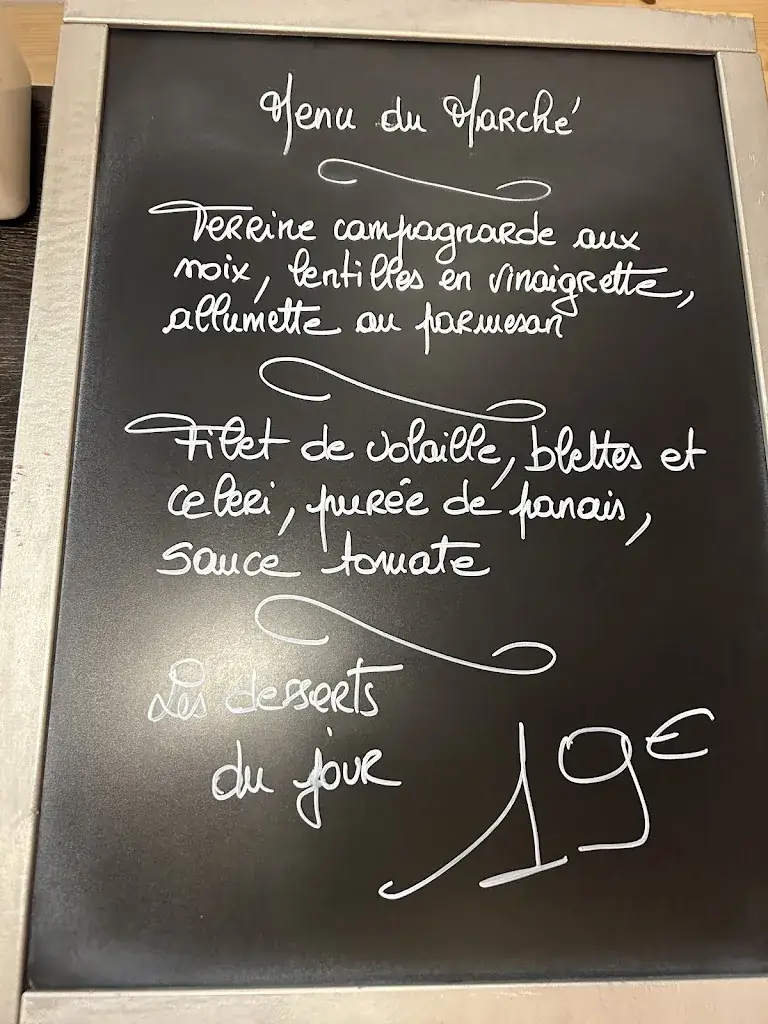 Menu du Marché
Terrine campagnarde aux
noix, lentilles en vinaigrette,
allumette au parmesan
Filet de volaille, blettes et
celeri, purée de panais,
sauce tomate
Les desserts
du jour
19€